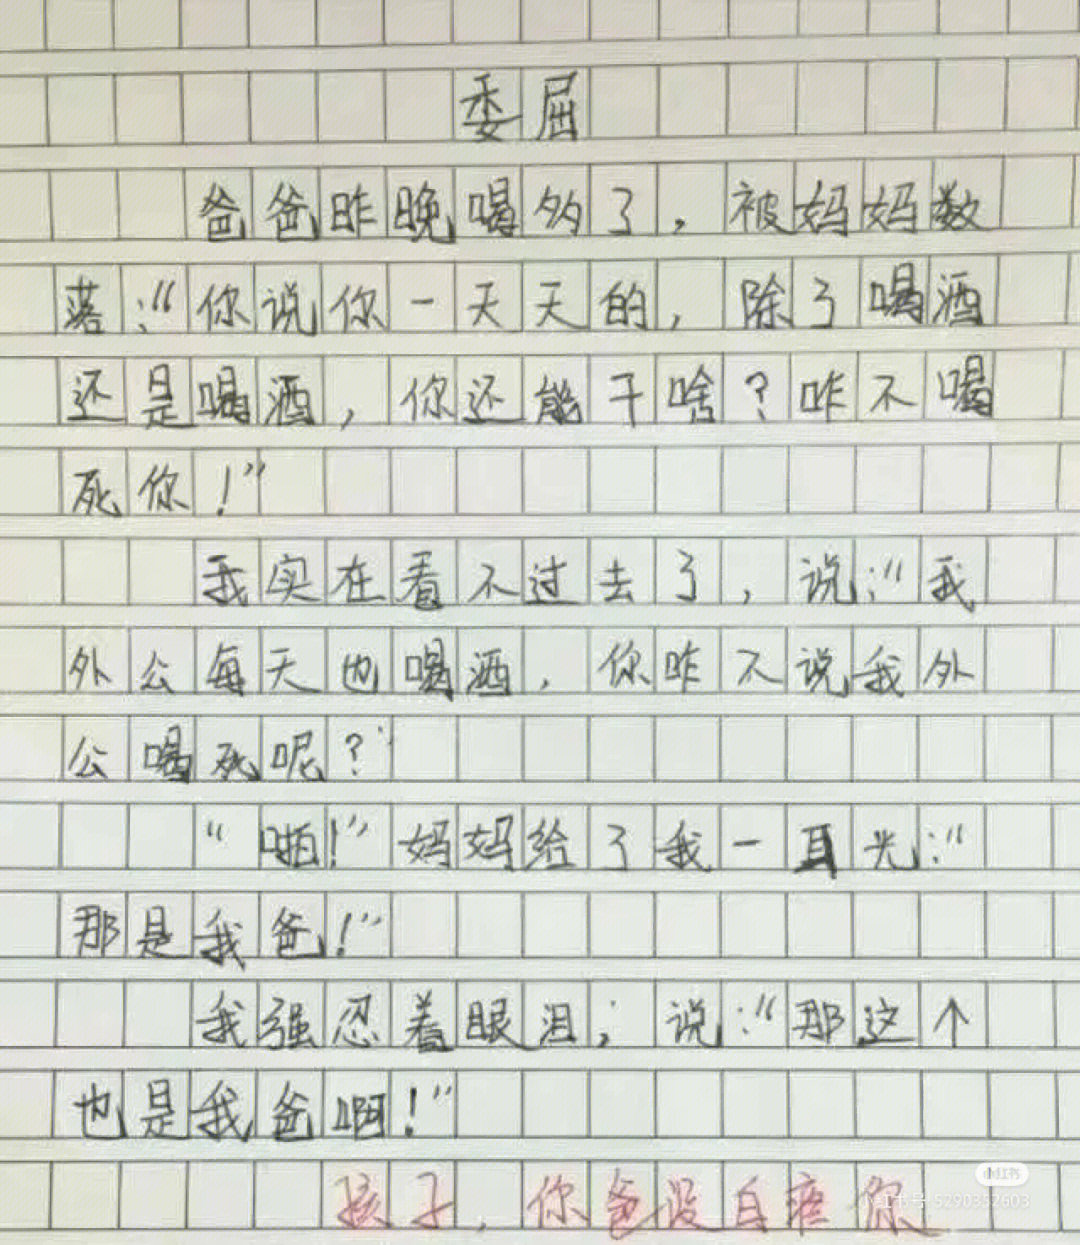 委屈
爸爸昨晚喝多了,被妈妈数
落:“你说你一天天的,除了喝酒
还是喝酒,你还能干啥?咋不喝
死你!”
我实在看不过去了,说:“我
外公每天也喝酒,你咋不说我外
公喝死呢?”
“啪!”妈妈给了我一耳光:“
那是我爸!”
我强忍着眼泪,说:“那这个
也是我爸啊!”
孩子,你爸没白疼你
小红书
小红书号:5290332603